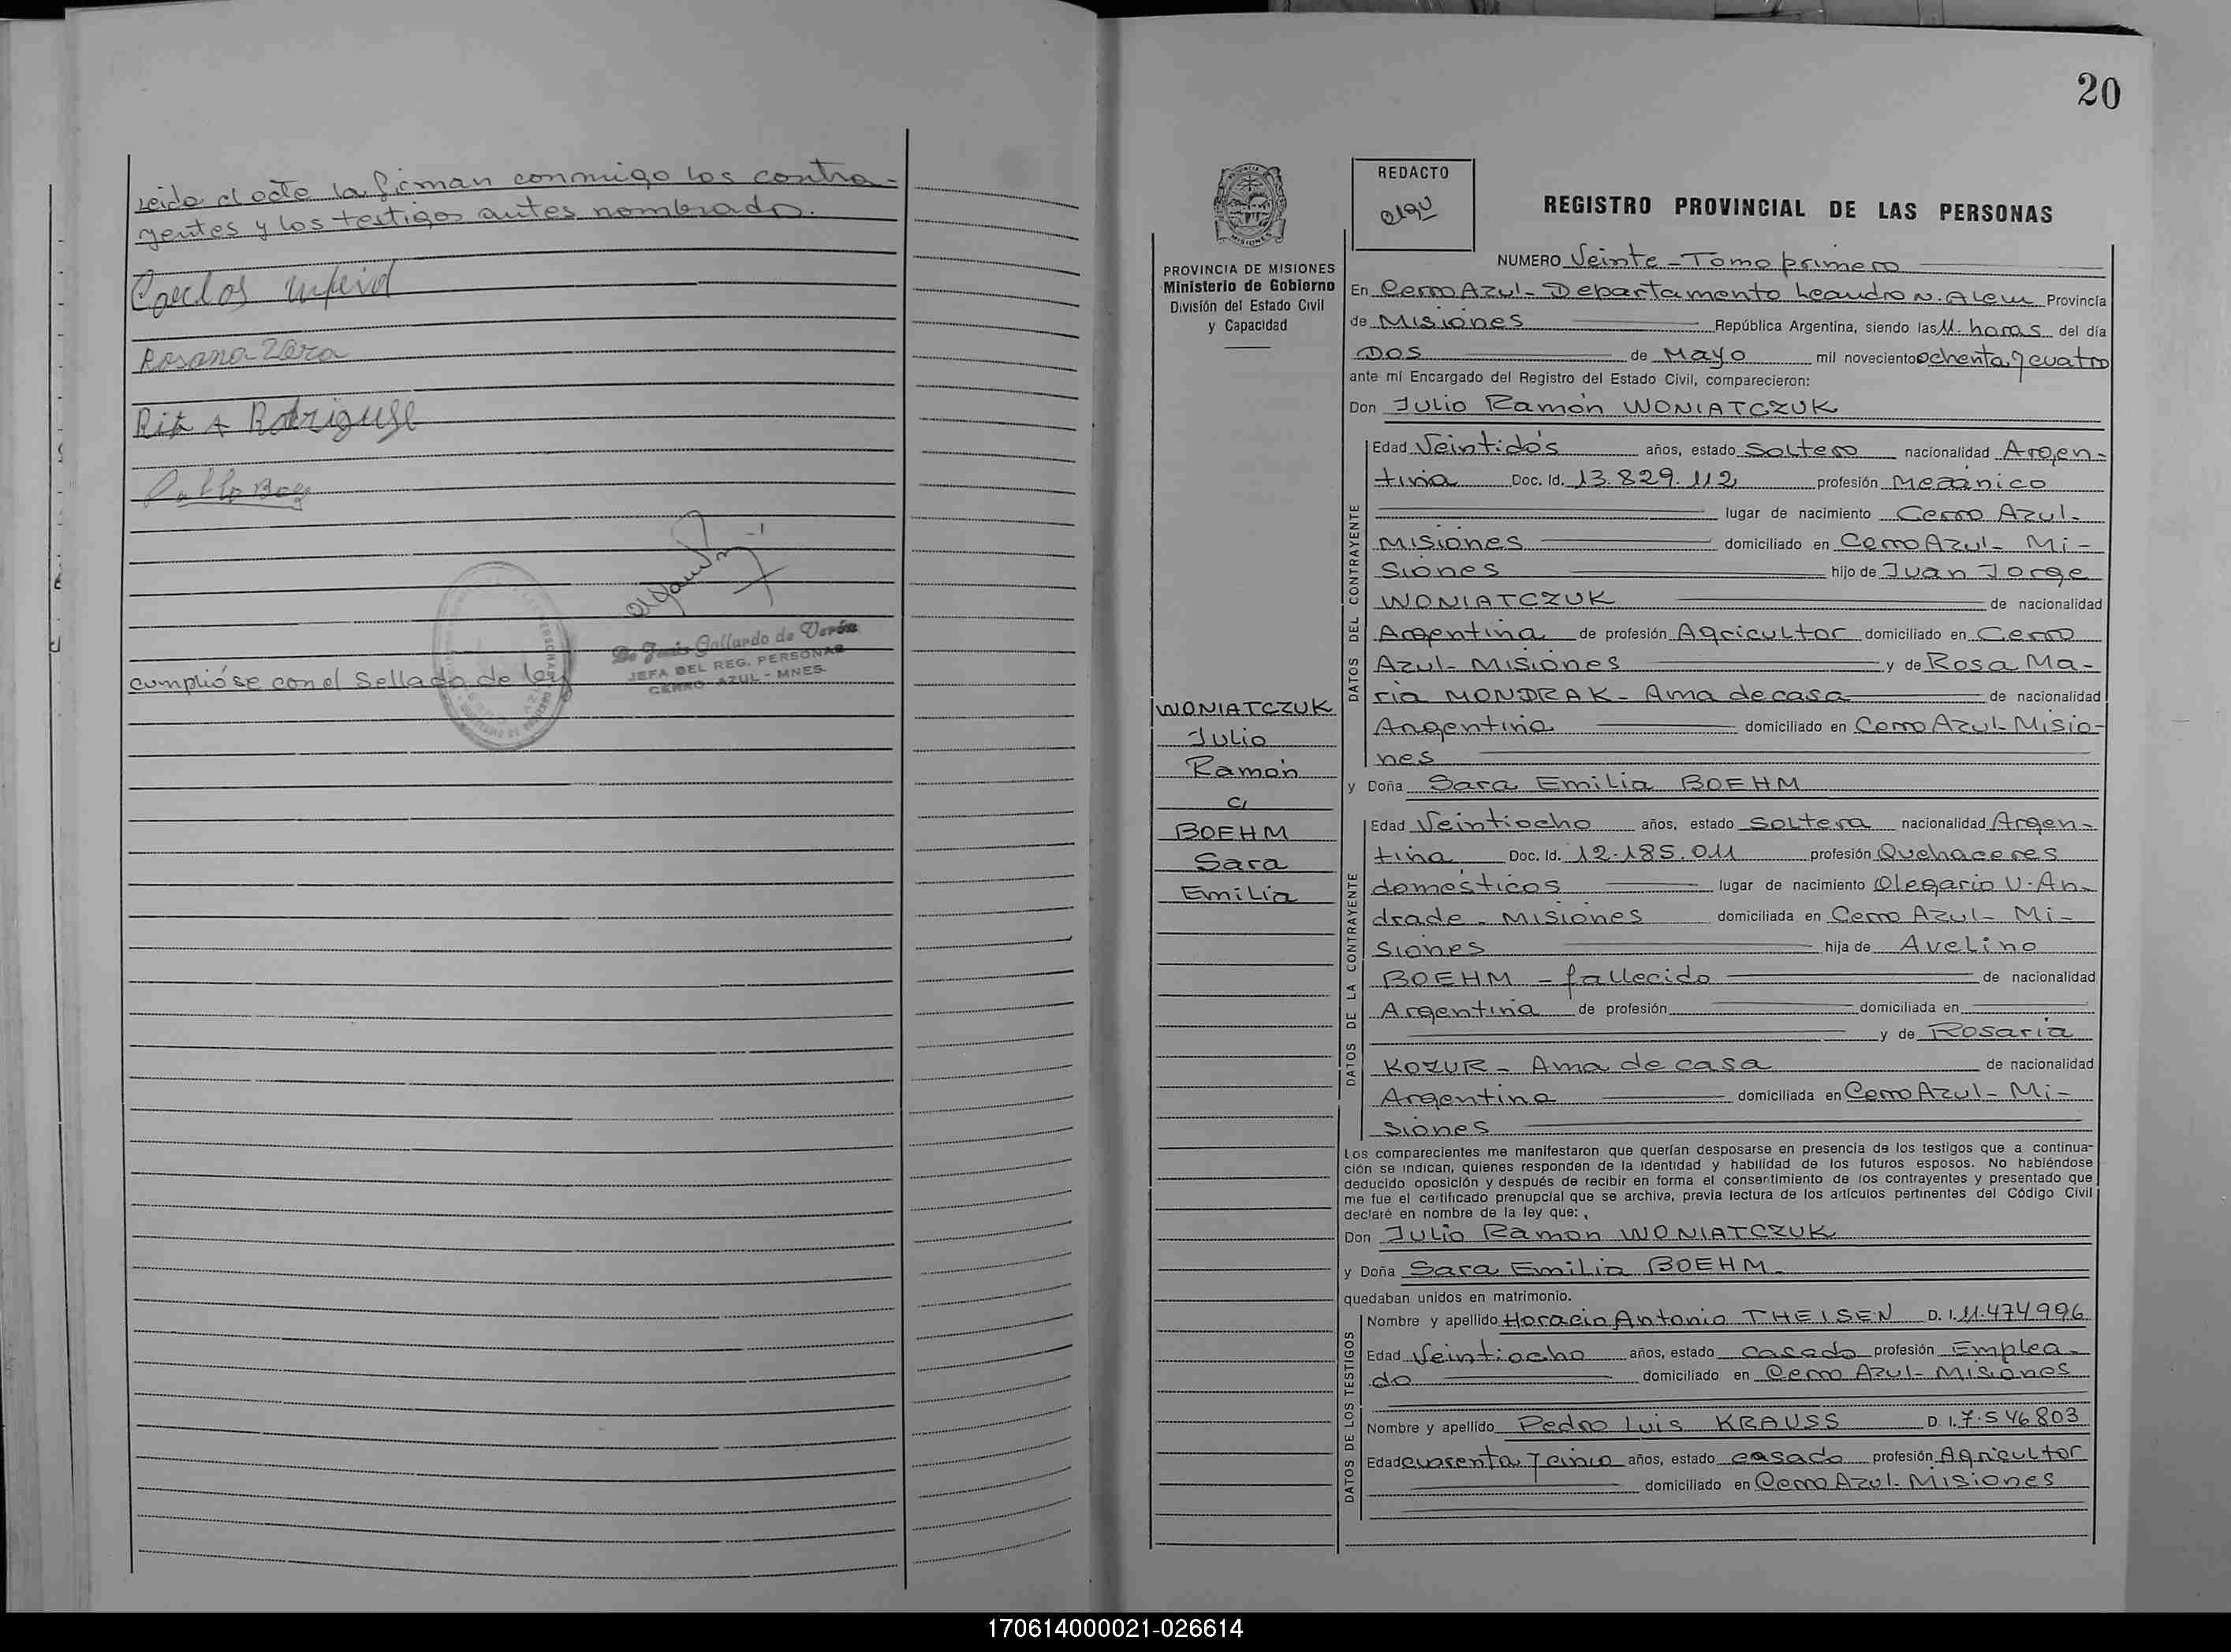 Leida el acta la firman conmigo los contra-
yentes y los testigos antes nombrado.
Carlos
Rosana Zara
Rita A Rodriguse
Pablo
De Jesús Gallardo de Verón
JEFA DEL REG. PERSONAS
CERRO AZUL - MNES.
cumplióse con el Sellado de ley
20
PROVINCIA DE MISIONES
Ministerio de Gobierno
División del Estado Civil
y Capacidad
WONIATCZUK
Julio
Ramón
c/
BOEHM
Sara
Emilia
REDACTO
REGISTRO PROVINCIAL DE LAS PERSONAS
NUMERO Veinte - Tomo primero
En Cerro Azul - Departamento Leandro N. Alem Provincia
de Misiones República Argentina, siendo las 11 horas del día
DOS de Mayo mil novecientos ochenta y cuatro
ante mí Encargado del Registro del Estado Civil, comparecieron:
Don Julio Ramón WONIATCZUK
DATOS DEL CONTRAYENTE
Edad Veintidós años, estado Soltero nacionalidad Argen-
tina Doc. Id. 13.829.112 profesión Mecánico
lugar de nacimiento Cerro Azul-
Misiones domiciliado en Cerro Azul - Mi-
siones hijo de Juan Jorge
WONIATCZUK de nacionalidad
Argentina de profesión Agricultor domiciliado en Cerro
Azul - Misiones y de Rosa Ma-
ria MONDRAK - Ama de casa de nacionalidad
Argentina domiciliado en Cerro Azul Misio-
nes
y Doña Sara Emilia BOEHM
DATOS DE LA CONTRAYENTE
Edad Veintiocho años, estado Soltera nacionalidad Argen-
tina Doc. Id. 12.185.011 profesión Quehaceres
domésticos lugar de nacimiento Olegario V. An-
drade - Misiones domiciliada en Cerro Azul - Mi-
siones hija de Avelino
BOEHM - fallecido de nacionalidad
Argentina de profesión domiciliada en
y de Rosaria
KOZUR - Ama de casa de nacionalidad
Argentina domiciliada en Cerro Azul - Mi-
siones
Los comparecientes me manifestaron que querían desposarse en presencia de los testigos que a continua-
ción se indican, quienes responden de la identidad y habilidad de los futuros esposos. No habiéndose
deducido oposición y después de recibir en forma el consentimiento de los contrayentes y presentado que
me fue el certificado prenupcial que se archiva, previa lectura de los artículos pertinentes del Código Civil
declaré en nombre de la ley que:
Don Julio Ramon WONIATCZUK
y Doña Sara Emilia BOEHM
quedaban unidos en matrimonio.
DATOS DE LOS TESTIGOS
Nombre y apellido Horacio Antonio THEISEN D. I. 11.474996
Edad Veintiocho años, estado casado profesión Emplea-
do domiciliado en Cerro Azul - Misiones
Nombre y apellido Pedro Luis KRAUSS D. I. 7.546.803
Edad cuarenta y cinco años, estado casado profesión Agricultor
domiciliado en Cerro Azul - Misiones
170614000021-026614